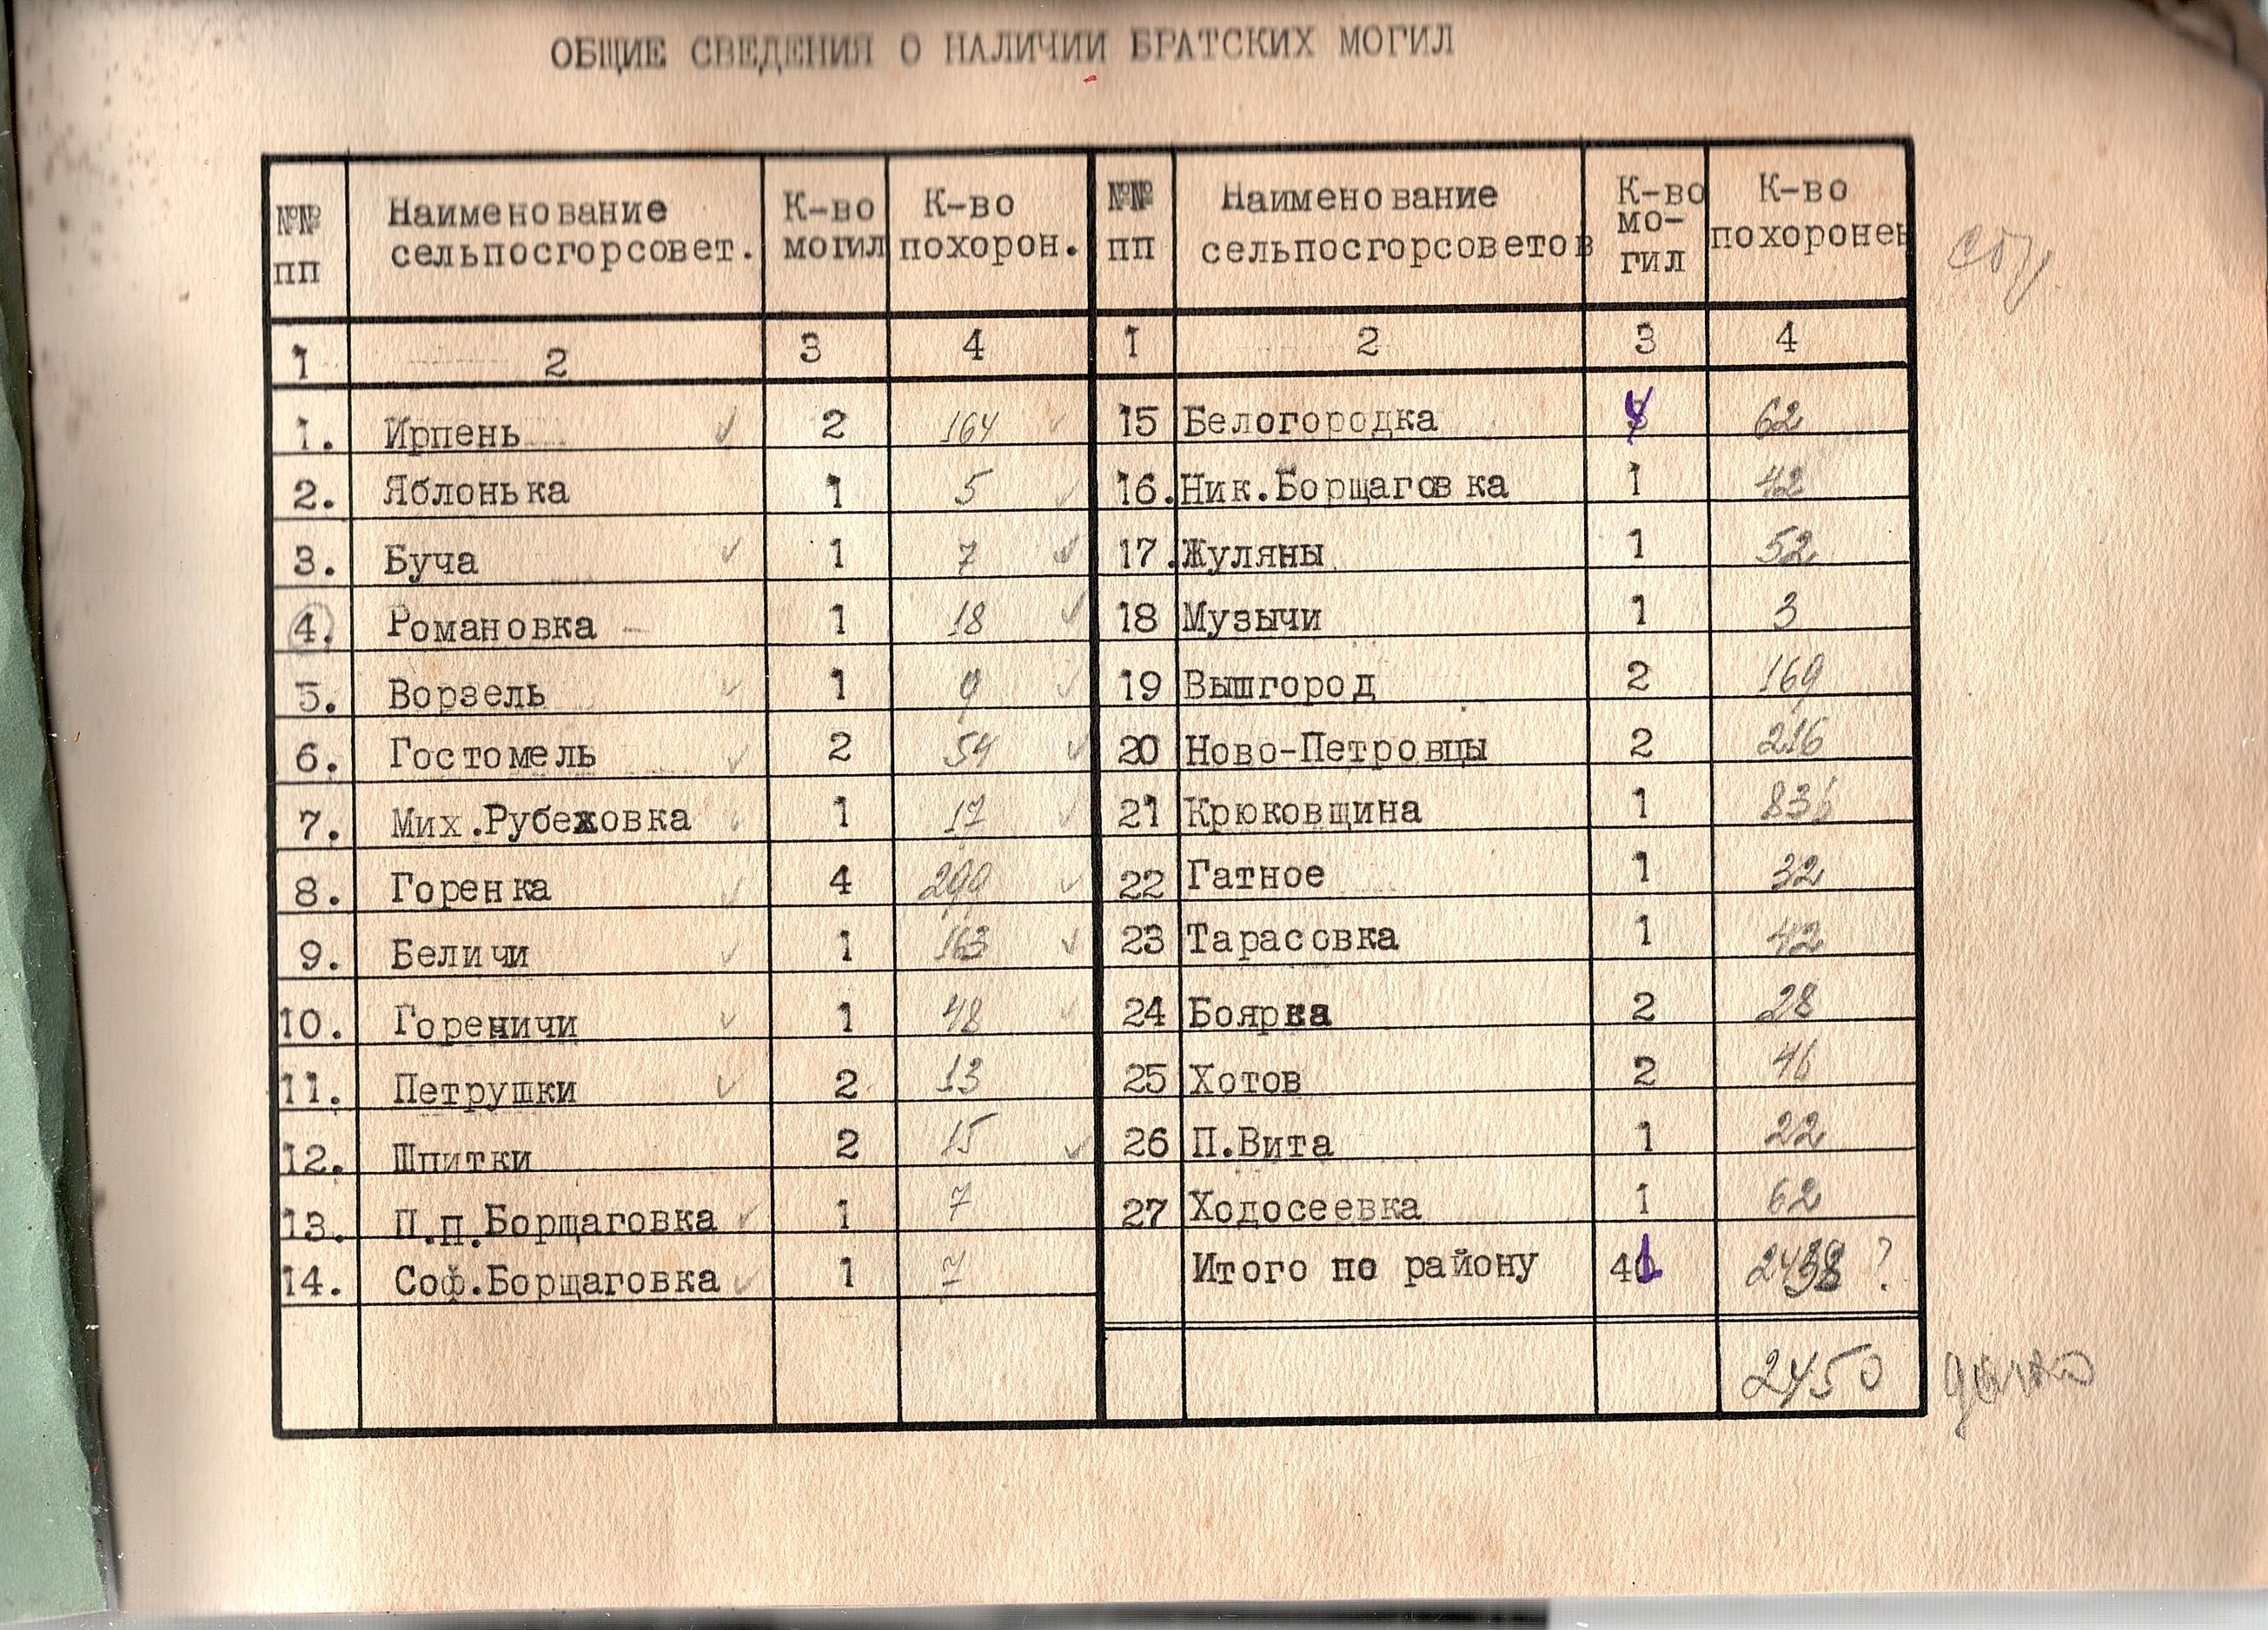 ОБЩИЕ СВЕДЕНИЯ О НАЛИЧИИ БРАТСКИХ МОГИЛ
№№ пп Наименование сельпосгорсовет. К-во могил К-во похорон.
1 2 3 4
1. Ирпень 2 164
2. Яблонька 1 5
3. Буча 1 7
4. Романовка 1 18
5. Ворзель 1 9
6. Гостомель 2 54
7. Мих.Рубежовка 1 17
8. Горенка 4 299
9. Беличи 1 163
10. Гореничи 1 48
11. Петрушки 2 13
12. Шпитки 2 15
13. П.п.Борщаговка 1 7
14. Соф.Борщаговка 1 7
№№ пп Наименование сельпосгорсоветов К-во мо-гил К-во похоронен
1 2 3 4
15 Белогородка 4 62
16. Ник.Борщаговка 1 42
17. Жуляны 1 52
18 Музычи 1 3
19 Вышгород 2 169
20 Ново-Петровцы 2 216
21 Крюковщина 1 836
22 Гатное 1 32
23 Тарасовка 1 42
24 Боярка 2 28
25 Хотов 2 46
26 П.Вита 1 22
27 Ходосеевка 1 62
Итого по району 41 2438 ?
2450